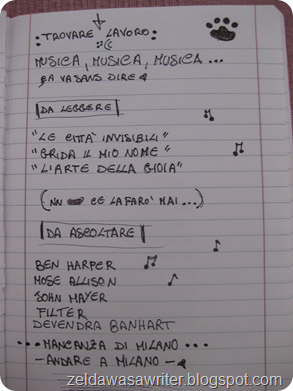 : TROVARE LAVORO :
MUSICA, MUSICA, MUSICA ...
ÇA VA SANS DIRE
DA LEGGERE
"LE CITTÀ INVISIBILI"
"GRIDA IL MIO NOME"
"L'ARTE DELLA GIOIA"
(NN CE LA FARO' MAI ...)
DA ASCOLTARE
BEN HARPER
MOSE ALLISON
JOHN MAYER
FILTER
DEVENDRA BANHART
... MANCANZA DI MILANO ...
- ANDARE A MILANO -
zeldawasawriter.blogspot.com